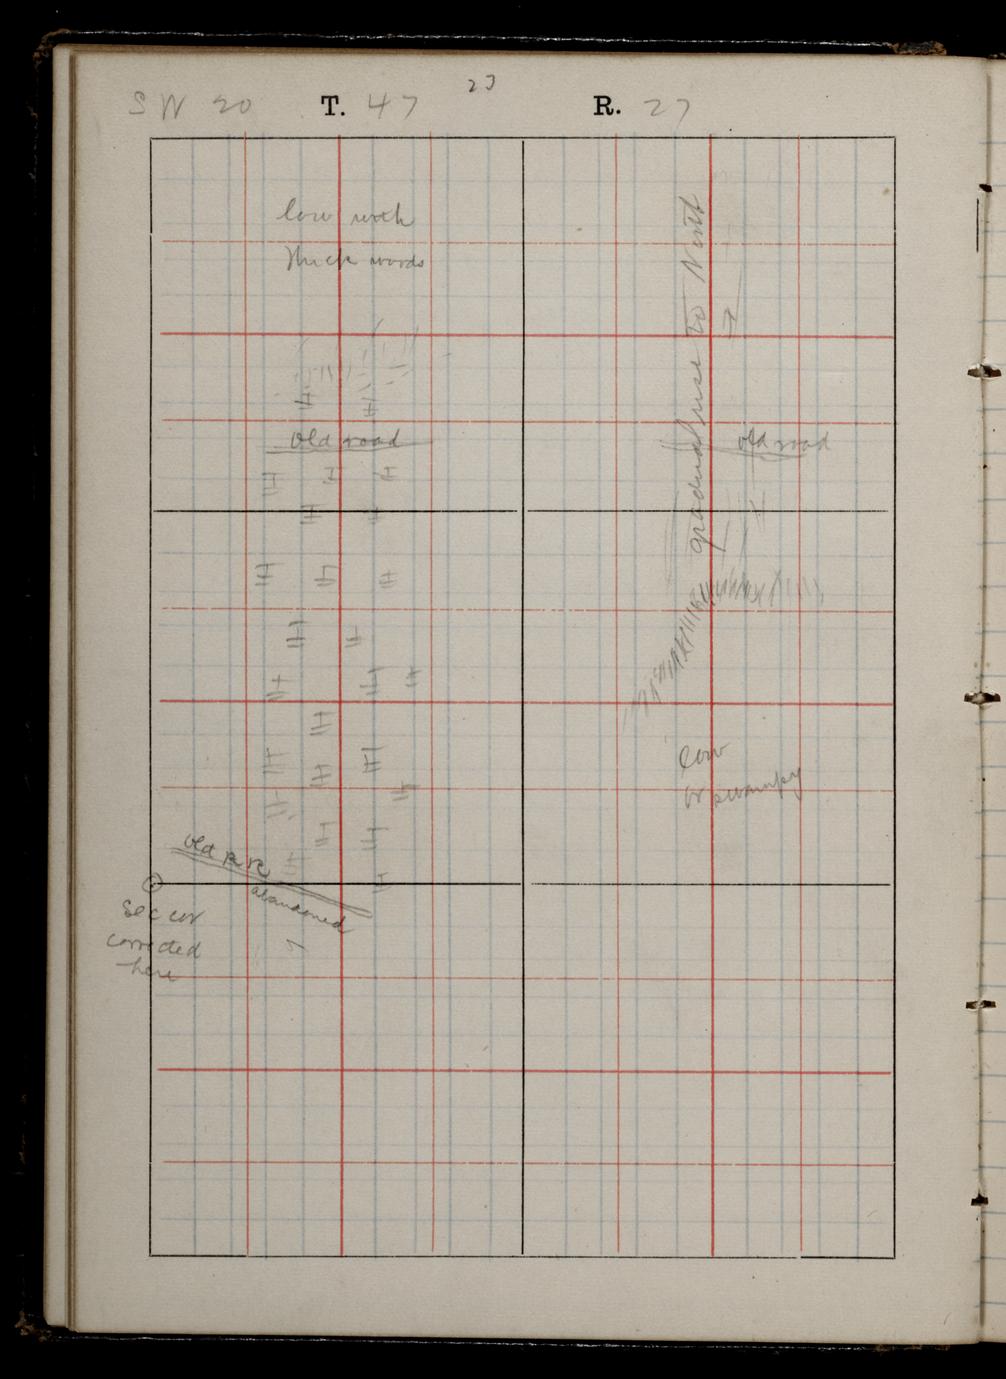 23
SW 20 T. 47 R. 27
low with
thick woods
old road
gradual rise to North
old road
low
or swampy
old R R
abandoned
Sec cor
corrected
here